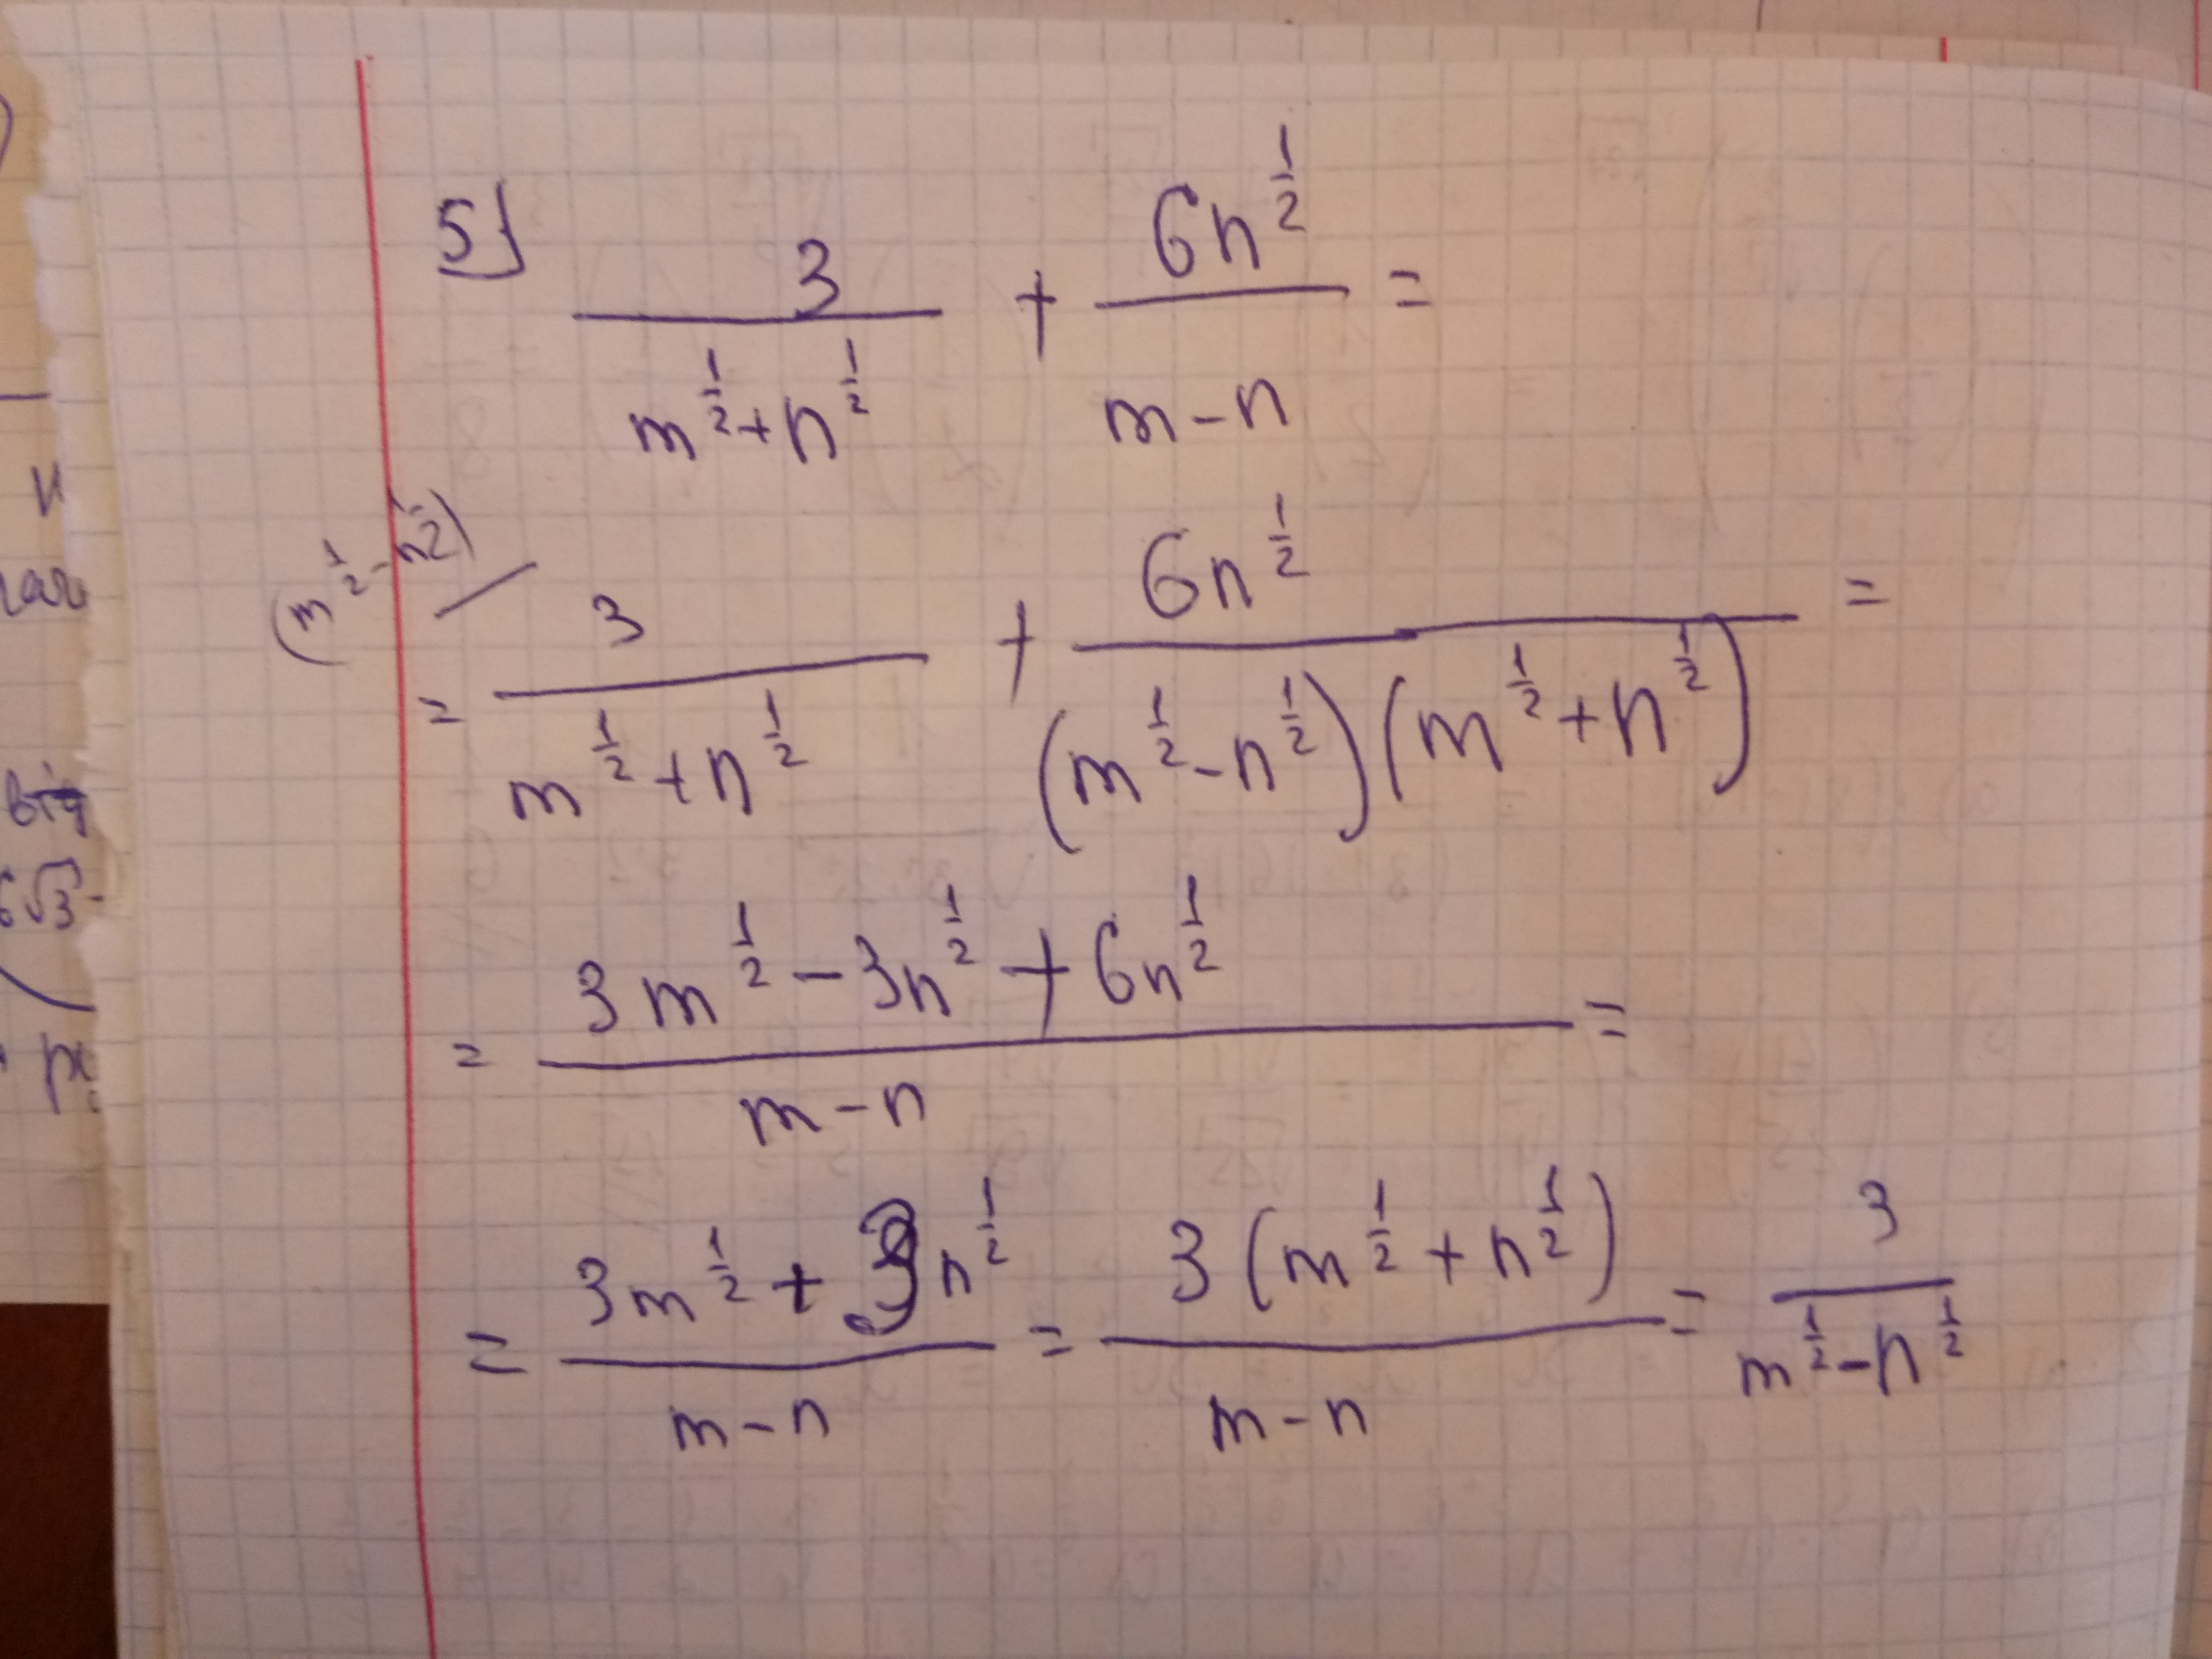 5) 3/(m^(1/2)+n^(1/2)) + 6n^(1/2)/(m-n) =
(m^(1/2)-n^(1/2)/
= 3/(m^(1/2)+n^(1/2)) + 6n^(1/2)/((m^(1/2)-n^(1/2))(m^(1/2)+n^(1/2))) =
= (3m^(1/2)-3n^(1/2)+6n^(1/2))/(m-n) =
= (3m^(1/2)+3n^(1/2))/(m-n) = 3(m^(1/2)+n^(1/2))/(m-n) = 3/(m^(1/2)-n^(1/2))
6√3-